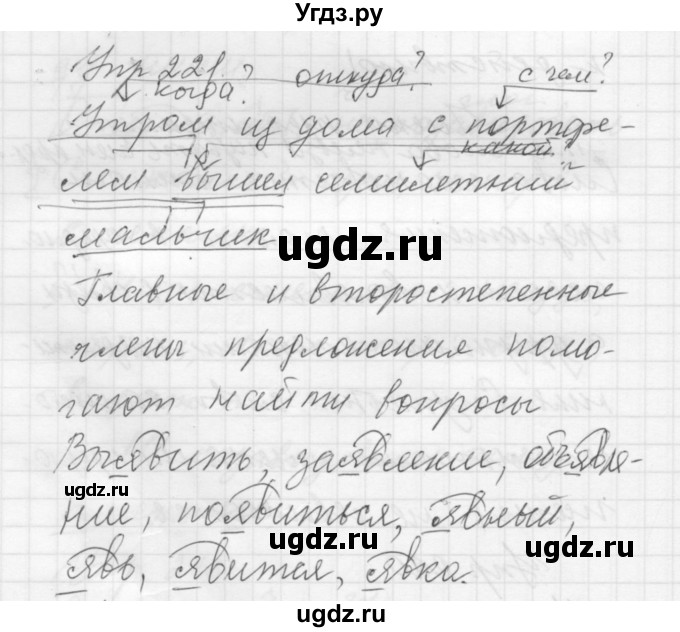 Угдз.ру
Упр 221. откуда? с чем?
когда?
Утром из дома с портфе-
какой?
лем вышел семилетний
мальчик
Главные и второстепенные
члены предложения помо-
гают найти вопросы
Выявить, заявление, объявле-
ние, появиться, явный,
явь, явится, явка.
ugdz.ru
ugdz.ru
ugdz.ru
ugdz.ru
ugdz.ru
ugdz.ru